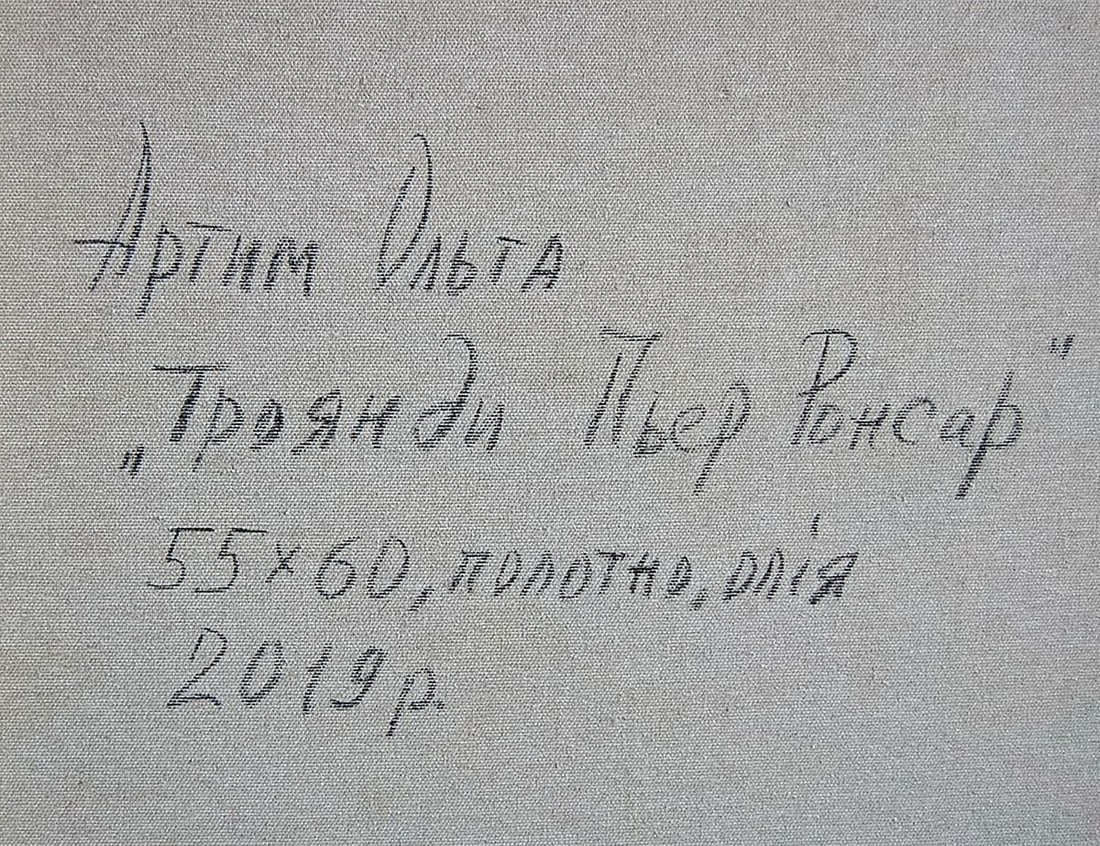 Артим Ольга
„Троянди Пьер Ронсар"
55×60, полотно, олія
2019р.